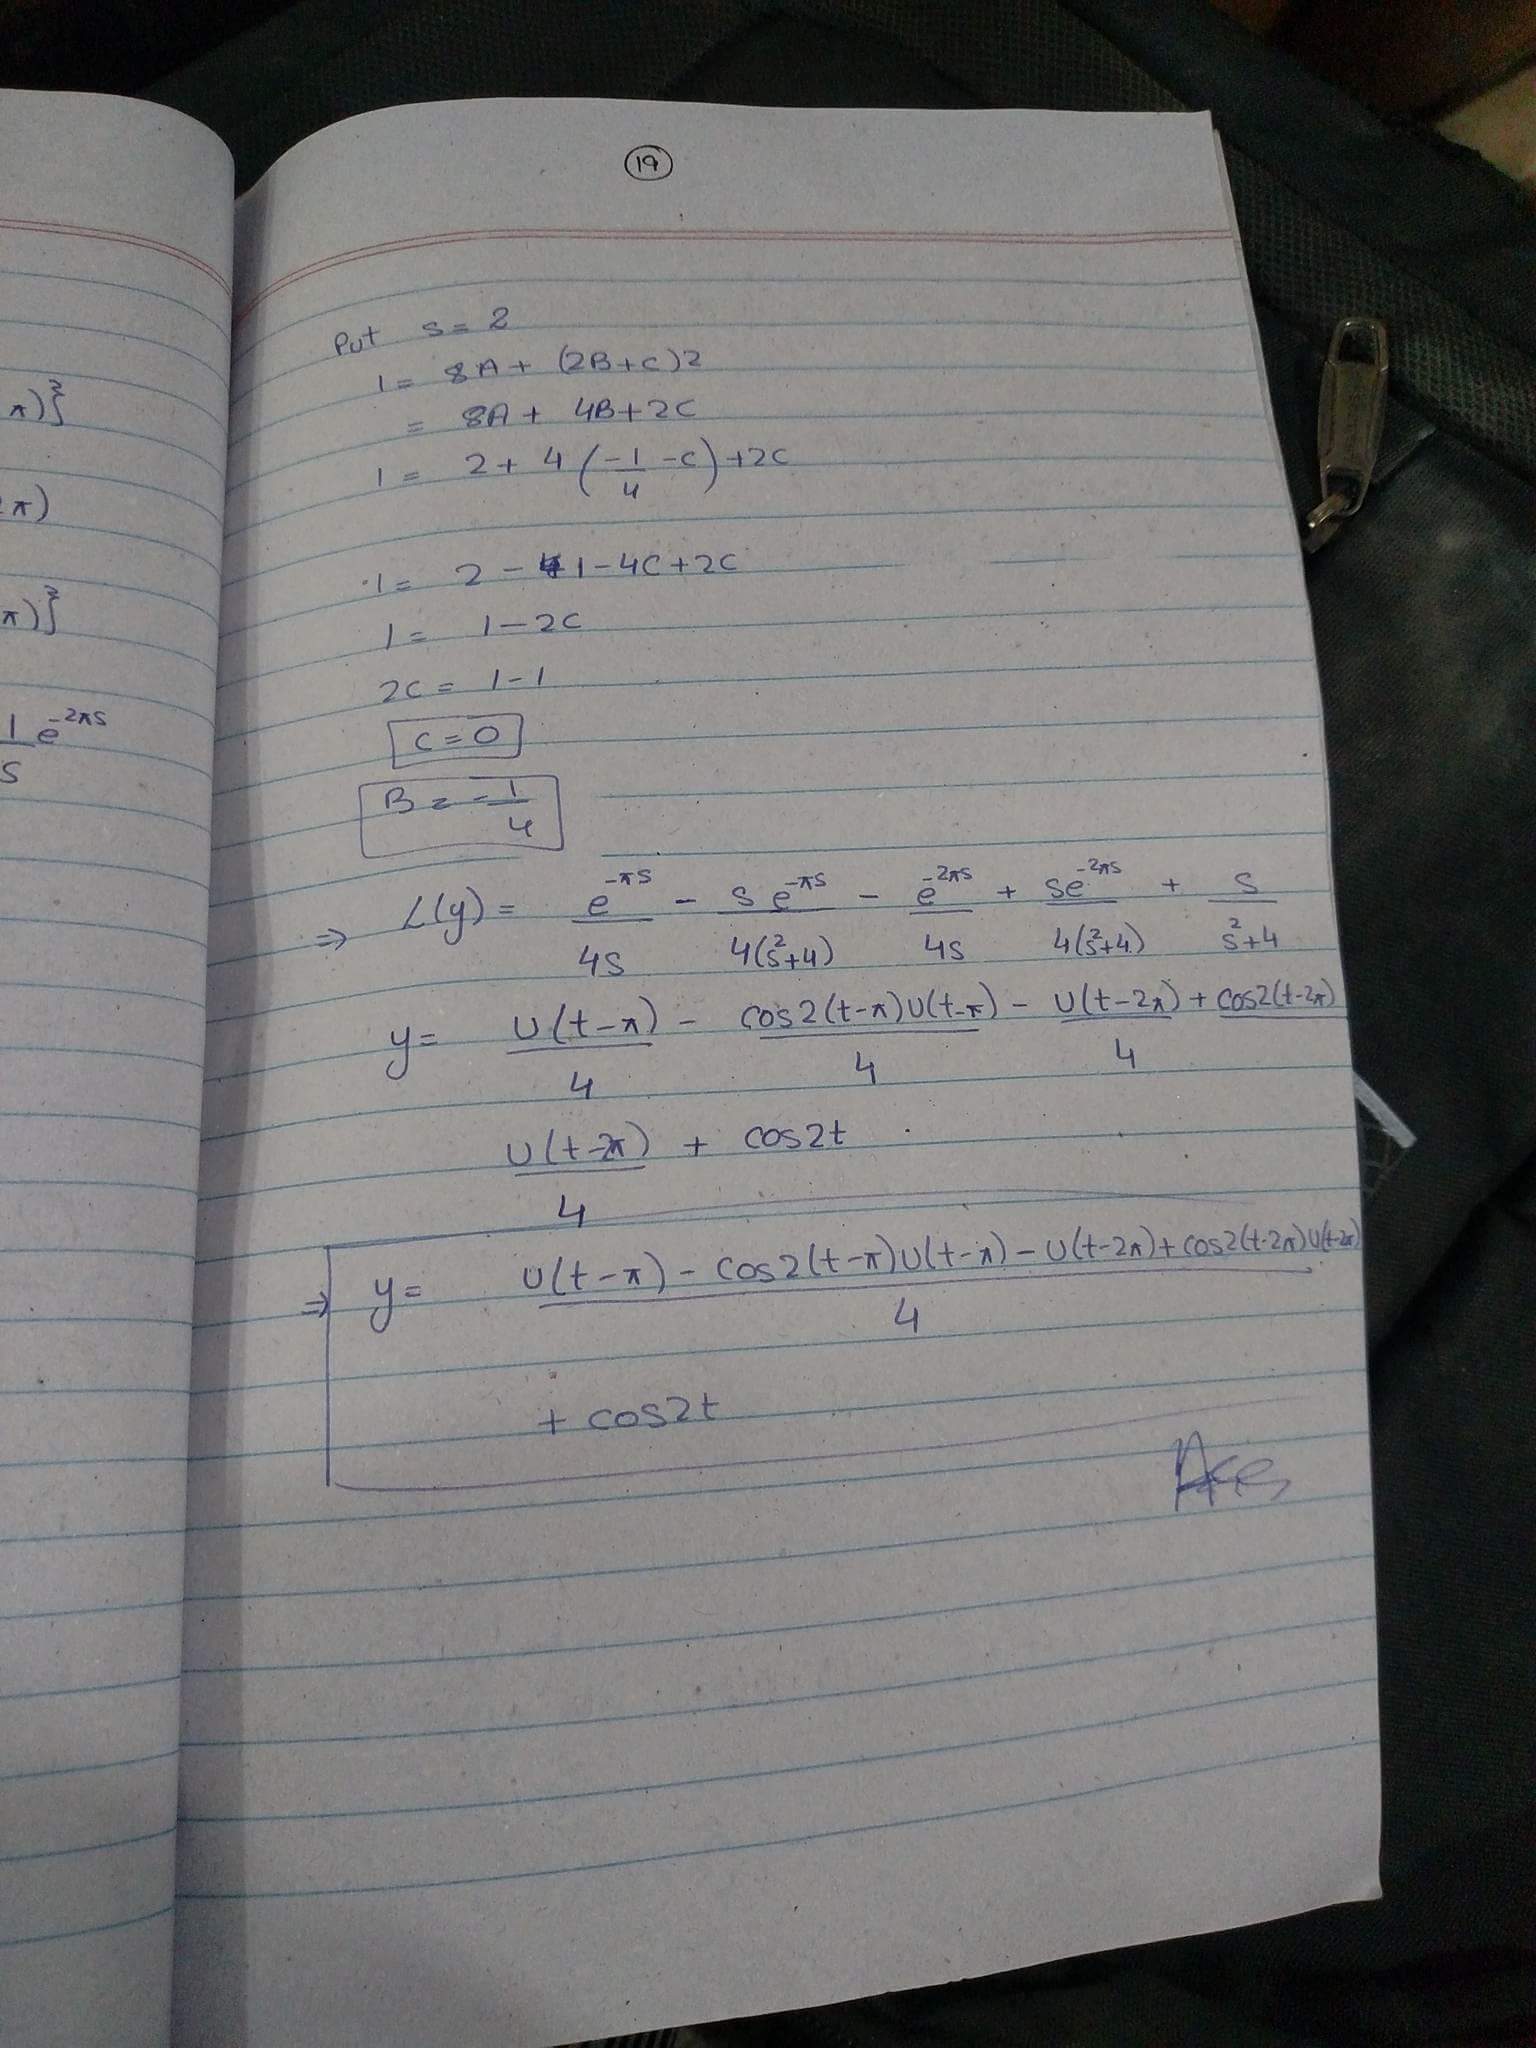 π)}
2π)
π)}
1/s e^-2πs
19
Put s = 2
1 = 8A + (2B+C)2
= 8A + 4B+2C
1 = 2 + 4(-1/4 - C) + 2C
1 = 2 - 1 - 4C + 2C
1 = 1 - 2C
2C = 1 - 1
C = 0
B = -1/4
⇒ L(y) = e^-πs/4s - s e^-πs/4(s²+4) - e^-2πs/4s + se^-2πs/4(s²+4) + s/s²+4
y = U(t-π)/4 - cos2(t-π)U(t-π)/4 - U(t-2π)/4 + cos2(t-2π)
U(t-2π)/4 + cos2t
⇒ y = U(t-π) - cos2(t-π)U(t-π) - U(t-2π) + cos2(t-2π)U(t-2π)/4
+ cos2t